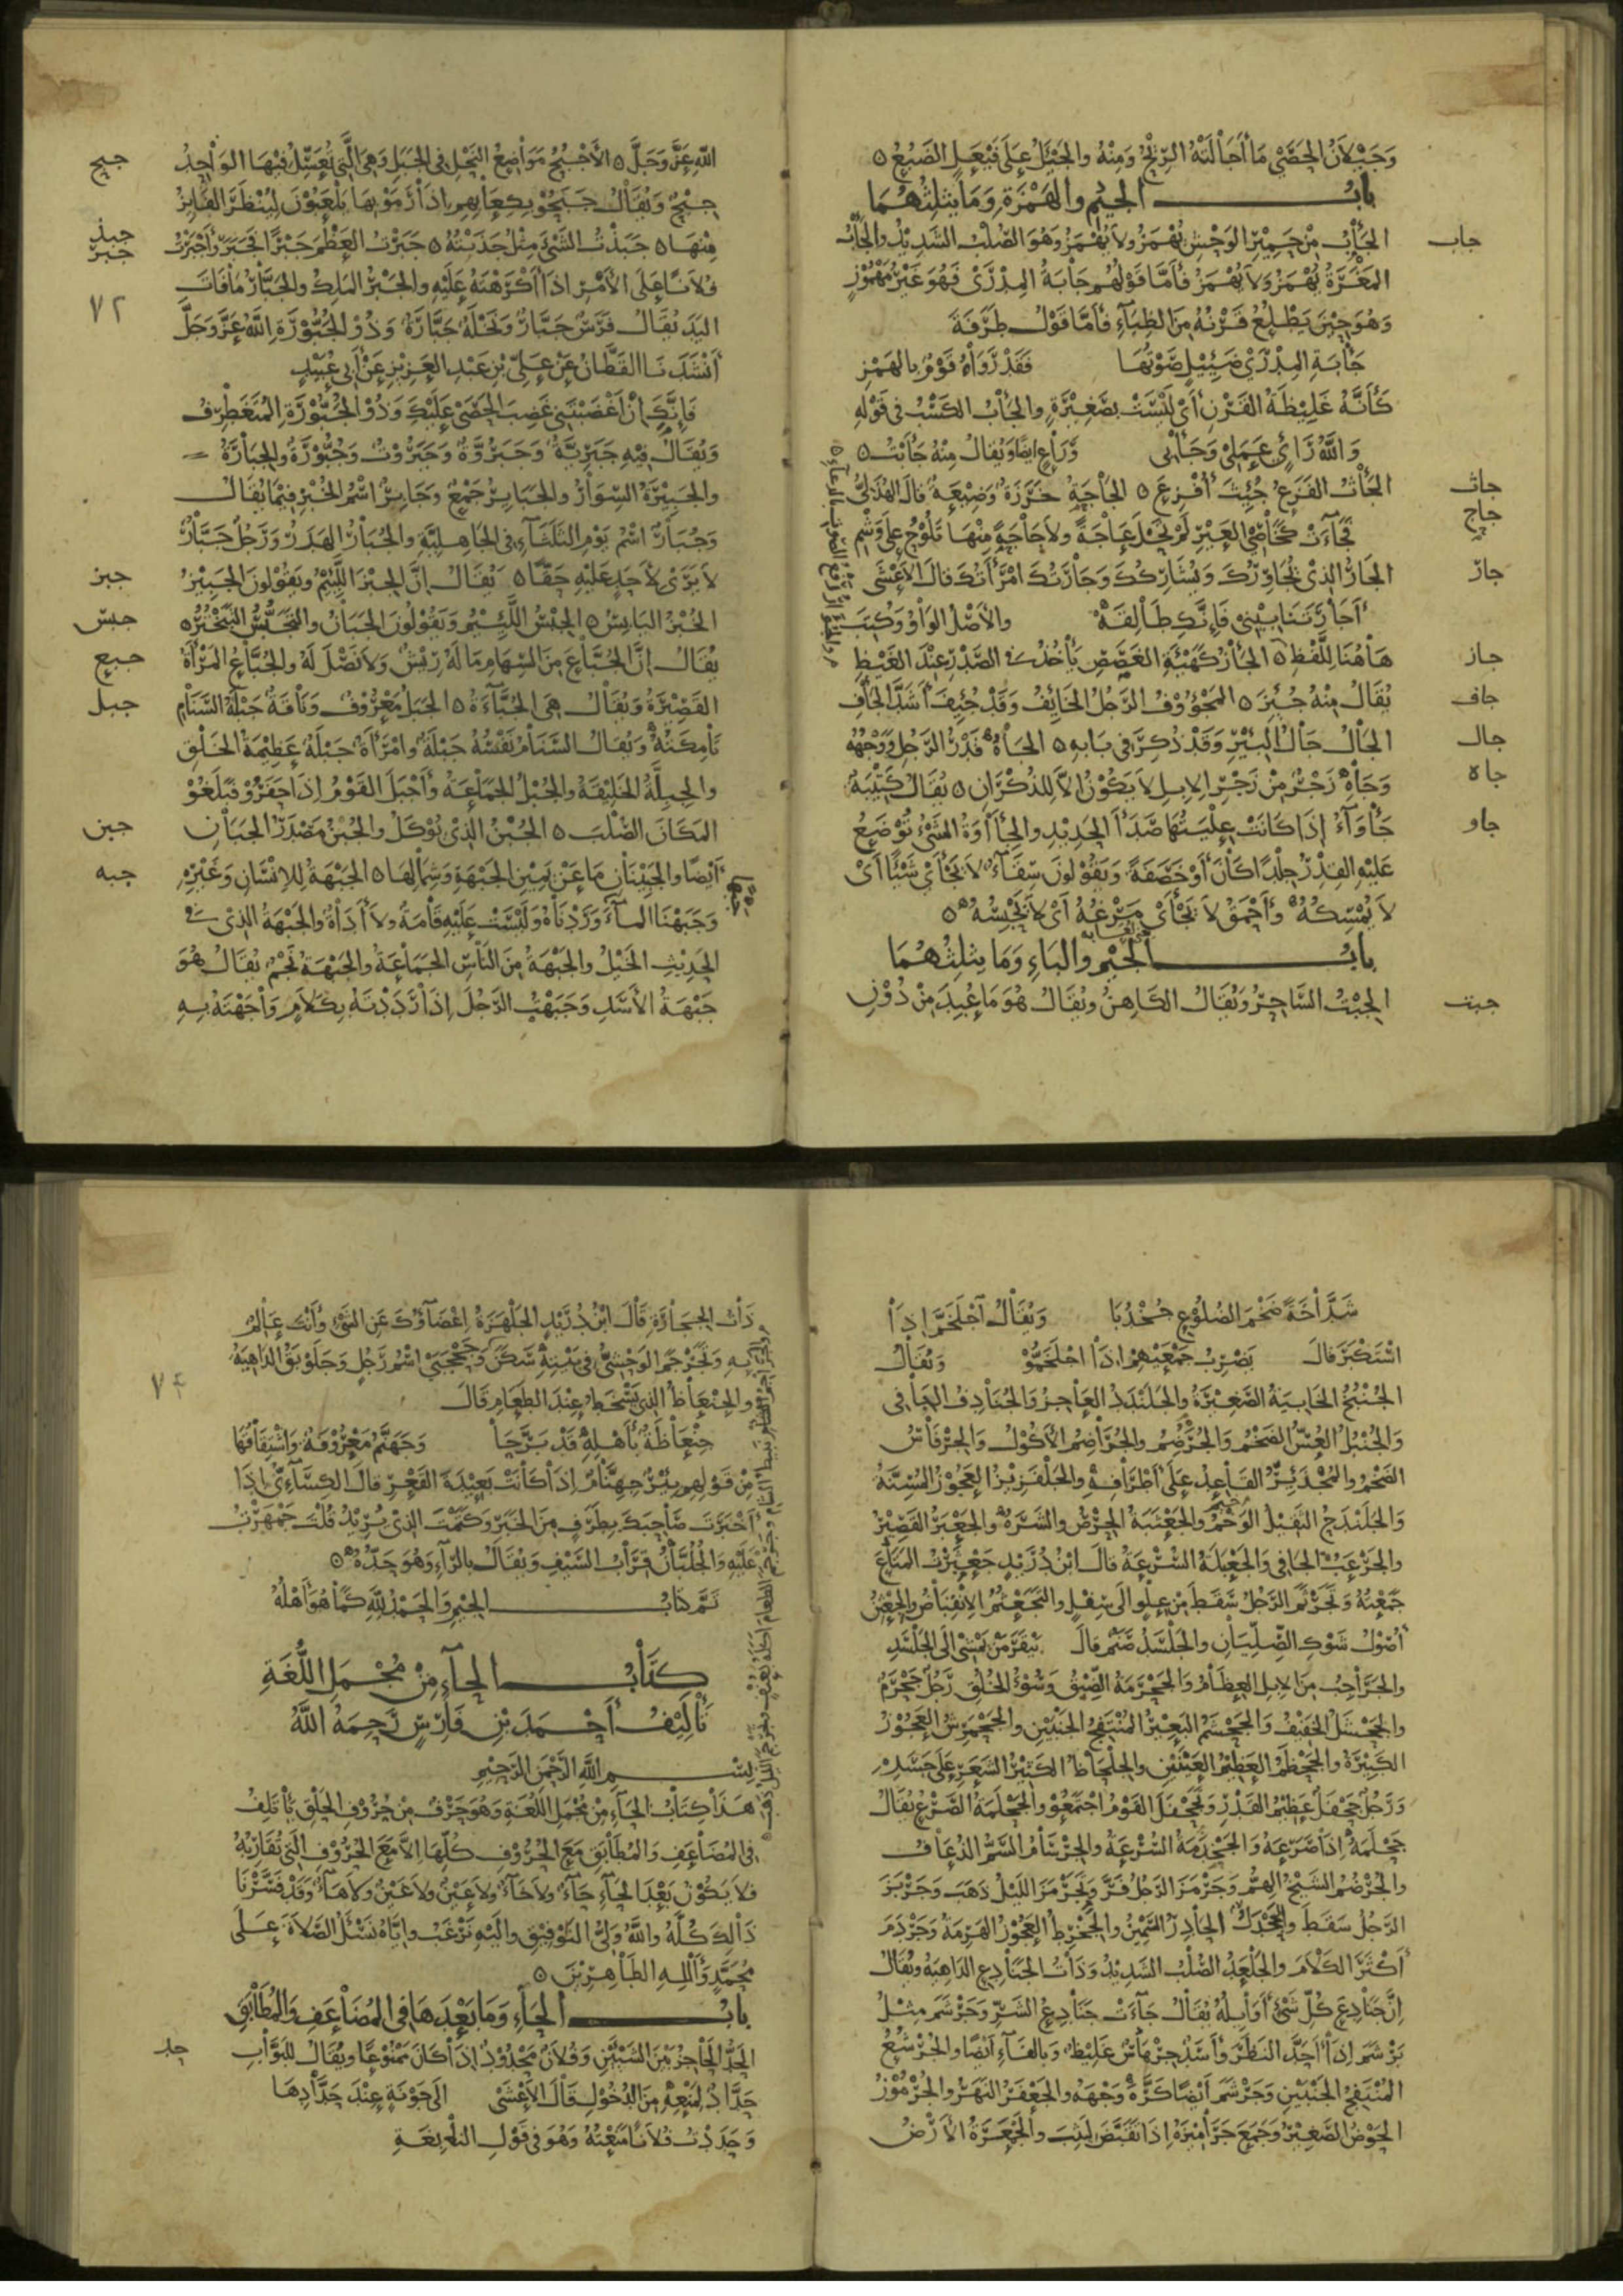 وَجَيْلَانُ الحَصَى مَا أَجَالَتْهُ الرِّيْحُ وَمِنْهُ والجَيْئَلُ عَلَى فَيْعَلٍ الضَبُعُ ه
بابُ الجيْمِ والهَمْزَةِ وَمَا يثلِثُهُمَا
جاب
الجَأْبُ مِنْ حَمِيْرِ الوَحْشِ يُهْمَزُ ولَا يُهْمَزُ وَهُوَ الصُّلْبُ الشَدِيْدُ والجَأْبُ
المَغْرَةُ يُهْمَزُ وَلَا يُهْمَزُ فَأَمَّا قَوْلُهُمْ جَابَةُ المِدْرَى فَهُوَ غَيْرُ مَهْمُوْزٍ
وَهُوَ حِيْنَ يَطْلُعُ قَرْنُهُ مِنَ الظِبَآءِ فَأَمَّا قَوْلُ طَرَفَةَ
جَأْبَةِ المِدْرَى ضَئِيْلٍ صَوْتُهَا فَقَدْ رَوَاهُ قَوْمٌ بالهَمْزِ
كَأَنَّهُ غَلِيْظَةُ القَرْنِ أَيْ لَيْسَتْ بصَغِيْرَةٍ والجَأْبُ الكَسْبُ في قَوْلِهِ
وَاللهُ رَاءٍ عَمَلِيْ وَجَأْبي وَرَاعٍ ايضًا وَيُقالُ مِنْهُ جَأَبْتُ ه
جاث
الجَأْثُ الفَزَعُ جُئِثَ أُفْزِعَ ه الجَاْجَةِ خَرَزَةٌ وَضِيْعَةٌ قالَ الهُذَلِيُّ
جاج
فَجَآءَتْ كَخَاصِي العَيْرِ لَمْ تَحْلَ عَاجَةً ولَا جَاجَةً مِنْهَا تَلُوْحُ عَلَى وَشْمِ
جار
الجَارُ الذِيْ يُجَاوِرُكَ وَيُشَارِكُكَ وَجَارَتُكَ امْرَأَتُكَ قالَ الأَعْشَى
أَجَارَتَنَا بِيْنِي فَإِنَّكِ طَالِقَهْ والأَصْلُ الوَاوُ وَكُتِبَ
جاز
هَاهُنَا لِلَّفْظِ ه الجَأْزُ كَهَيْئَةِ الغَصَصِ يَأْخُذُ في الصَّدْرِ عِنْدَ الغَيْظِ
جاف
يُقَالُ مِنْهُ جُئِزَ ه المَجْؤُوْفُ الرَّجُلُ الخَايِفُ وَقَدْ جُئِفَ أَشَدَّ الجَأْفِ
جال
الجَالُ جَالُ البِئْرِ وَقَدْ ذُكِرَ في بَابِهِ ه الجَاهُ قَدْرُ الرَّجُلِ وَوَجْهُهُ
جاه
وَجَاهْ زَجْرٌ مِنْ زَجْرِ الإِبِلِ لَا يَكُوْنُ إِلَّا لِلذُّكْرَانِ ه يُقَالُ كَتِيْبَةٌ
جاو
جَأْوَآءُ إِذَا كَانَتْ عِلْيَتُهَا صَدَأُ الحَدِيْدِ والجِئَاوَةُ الشَيْءُ تُوْضَعُ
عَلَيْهِ القِدْرُ جِلْدًا كَانَ أَوْ خَصَفَةً وَيَقُوْلُونَ سِقَآءٌ لَا يَجْأَى شَيْئًا أَيْ
لَا يُمْسِكُهُ وَأَحْمَقُ لَا يَجْأَى مَرْغَهُ أَيْ لَا يَحْبِسُهُ ه
لعابه
بابُ الجِيْمِ والبَاءِ وَمَا يثلِثُهُمَا
جبت
الجِبْتُ السَّاحِرُ وَيُقَالُ الكَاهِنُ ويُقَالُ هُوَ مَا عُبِدَ مِنْ دُوْنِ
جبح
اللهِ عَزَّ وَجَلَّ ه الأَجْبُحُ مَوَاضِعُ النَحْلِ في الجَبَلِ وَهِيَ الَّتي تُعَسِّلُ فِيْهَا الوَاحِدُ
جِبْحٌ وَيُقَالُ جَبَحُوْ بِكِعَابِهِمْ إِذَا رَمَوْ بِهَا يَلْعَبُوْنَ لِيُنْظَرَ الفَايِزُ
جبذ
جبر
مِنْهَا ه جَبَذْتُ الشَيْءَ مِثْلُ جَذَبْتُهُ ه جَبَرْتُ العَظْمَ جَبْرًا فَجَبَرَ وَأَجْبَرْتُ
٧٢
فُلَانًا عَلَى الأَمْرِ إذَا أَكْرَهْتَهُ عَلَيْهِ والجَبْرُ المَلِكُ والجَبَّارُ مَا فَاتَ
اليَدَ يُقَالُ فَرَسٌ جَبَّارٌ ونَخْلَةٌ جَبَّارَةٌ وَذُوْ الجُبُّوْرَةِ اللهُ عَزَّ وَجَلَّ
أَنْشَدَنَا القَطَّانُ عَنْ عَلِيِّ بْنِ عَبْدِ العَزِيْزِ عَنْ أَبي عُبَيْدٍ
فَإِنَّكَ إِنْ أَغْضَبْتَنِي غَضِبَ الحَصَى عَلَيْكَ وَذُوْ الجُبُّوْرَةِ المُتَغَطْرِفُ
وَيُقَالُ فِيْهِ جَبَرِيَّةٌ وَجَبَرُوَّةٌ وَجَبَرُوْتٌ وَجُبُّوْرَةٌ والجِبَارَةُ
والجَبِيْرَةُ السِّوَارُ والجَبَايِرُ جَمْعٌ وَجَابِرٌ اسْمُ الخُبْزِ فِيْمَا يُقَالُ
وَجُبَارٌ اسْمُ يَوْمِ الثَلَثَآءِ في الجَاهِلِيَّةِ والجُبَارُ الهَدَرُ وَرَجُلٌ جَبَّارٌ
جبز
لَا يَرَى لأَحَدٍ عَلَيْهِ حَقًّا ه يُقَالُ إِنَّ الجِبْزَ اللَّئِيْمُ وَيَقُوْلُونَ الجَبِيْزُ
جبس
الخُبْزُ اليَابِسُ ه الجِبْسُ اللَّئِيْمُ وَيَقُوْلُونَ الجَبَانُ والتَجَبُّسُ التَبَخْتُرُ ه
جبع
يُقَالُ إِنَّ الجُبَّاعَ مِنَ السِّهَامِ مَا لَهُ رِيْشٌ وَلَا نَصْلَ لَهُ والجُبَّاعُ المَرْأَةُ
جبل
القَصِيْرَةُ وَيُقَالُ هِيَ الجُبَّاعَةُ ه الجَبَلُ مَعْرُوْفٌ وَنَاقَةٌ جَبْلَةُ السَّنَامِ
تَامِكَتُهُ وَيُقَالُ السَّنَامُ نَفْسُهُ جَبْلَةٌ وامْرَأَةٌ جَبْلَةٌ عَظِيْمَةُ الخَلْقِ
والجِبِلَّةُ الخَلِيْقَةُ والجُبْلُ الجَمَاعَةُ وَأَجْبَلَ القَوْمُ إِذَا حَفَرُوْ فَبَلَغُوْ
جبن
المَكَانَ الصُّلْبَ ه الجُبْنُ الذِيْ يُوْكَلُ والجُبْنُ مَصْدَرُ الجَبَانِ
جبه
أَيْضًا والجَبِيْنَانِ مَا عَنْ يَمِيْنِ الجَبْهَةِ وَشِمَالِهَا ه الجَبْهَةُ لِلإِنْسَانِ وَغَيْرِهِ
وَجَبَهْنَا المآءَ وَرَدْنَاهُ وَلَيْسَتْ عَلَيْهِ قَامَةٌ ولَا أَدَاةٌ والجَبْهَةُ الذِيْ في
الحَدِيْثِ الخَيْلُ والجَبْهَةُ مِنَ النَاسِ الجَمَاعَةُ والجَبْهَةُ نَجْمٌ يُقَالُ هُوَ
جَبْهَةُ الأَسَدِ وَجَبَهْتُ الرَّجُلَ إِذَا رَدَدْتَهُ بِكَلَامٍ وَاجَهْتَهُ بِهِ
شَدَّاخَةً ضَخْمَ الضُلُوْعِ جُخْدُبَا وَيُقَالُ اجْلَخَمَّ إِذَا
اسْتَكْبَرَ قالَ بِضَرْبِ جَمْعَيْهِمْ إِذَا اجْلَخَمُّوْ وَيُقَالُ
الجُنْبُخُ الخَابِيَةُ الصَغِيْرَةُ والجَلَنْدَدُ العَاجِزُ وَالجُنَادِفُ الجَافي
وَالجُنْبُلُ العُسُّ الضَخْمُ وَالجُرْضُمُ والجُرَاضِمُ الأَكُوْلُ وَالجِرْفَاسُ
الضَخْمُ والمُجْذَئِرُّ القَاعِدُ عَلَى أَطْرَافِهِ والجَلْفَزِيْزُ العَجُوْزُ المُسِنَّةُ
وَالجَلَنْدَحُ الثَقِيْلُ الوَخْمُ والجَعْثَبَةُ الحِرْصُ والشَرَهُ والجَعْبَرُ القَصِيْرُ
والجَرْعَبُ الجَافي وَالجَعْبَلَةُ السُّرْعَةُ قالَ ابْنُ دُرَيْدٍ جَعْثَرْتُ المَتَاعَ
جَمَعْتُهُ وَتَجَرْثَمَ الرَّجُلُ سَقَطَ مِنْ عِلْوٍ إلَى سِفْلٍ والتَجَعْثُمُ الإِنْقِبَاضُ والجِعْثِنُ
أُصُوْلُ شَوْكِ الصِّلِّيَانِ والجَلْسَدُ صَنَمٌ قالَ بَيْقَرَ مَنْ يَمْشِي إلَى الجَلْسَدِ
والجُرَاجِبُ مِنَ الإِبِلِ العِظَامُ وَالجَحْرَمَةُ الضِّيْقُ وَسُوْءُ الخُلُقِ رَجُلٌ جَحْرَمٌ
والجَحْشَلُ الخَفِيْفُ وَالجَحْشَمُ البَعِيْرُ المُنْتَفِجُ الجَنْبَيْنِ والجَحْمَرِشُ العَجُوْزُ
الكَبِيْرَةُ والجَحْظَمُ العَظِيْمُ العَيْنَيْنِ والجِلْحَاظُ الكَثِيْرُ الشَعَرِ عَلَى جَسَدِهِ
وَرَجُلٌ جَحْفَلٌ عَظِيْمُ القَدْرِ وَتَجَحْفَلَ القَوْمُ اجْتَمَعُوْ وَالجَحْلَمَةُ الصَرْعُ يُقَالُ
جَحْلَمَهُ إِذَا صَرَعَهُ وَالجَحْدَمَةُ السُّرْعَةُ والجِرْسَامُ السَّمُّ الذُعَافُ
والجُرْضُمُ الشَيْخُ الهِمُّ وَجَرْمَزَ الرَّجُلُ فَرَّ وَتَجَرْمَزَ اللَيْلُ ذَهَبَ وَجَرْبَزَ
الرَّجُلُ سَقَطَ وَالجَحْدَلُ الحَادِرُ السَّمِيْنُ والجَحْرِطُ العَجُوْزُ الهَرِمَةُ وَجَرْدَمَ
أَكْثَرَ الكَلَامَ والجَلْعَدُ الصُّلْبُ الشَدِيْدُ وَذَاتُ الجَنَادِعِ الدَاهِيَةُ وَيُقَالُ
إِنَّ جَنَادِعَ كُلِّ شَيْءٍ أَوَايِلُهُ يُقَالُ جَآءَتْ جَنَادِعُ الشَرِّ وَجَرْشَمَ مِثْلُ
بَرْشَمَ إِذَا أَحَدَّ النَظَرَ وَأَسَدٌ جِرْهَاسٌ غَلِيْظٌ وَبالفَآءِ أَيْضًا والجُرْشُعُ
المُنْتَفِجُ الجَنْبَيْنِ وَجَرْشَمَ أَيْضًا كَرَّهَ وَجْهَهُ والجَعْفَرُ النَهَرُ والجُرْمُوْزُ
الحَوْضُ الصَغِيْرُ وَجَمَعَ جَرَامِيْزَهُ إِذَا تَقَبَّضَ لِيَثِبَ والجَمْعَرَةُ الأَرْضُ
ذَاتُ الحِجَارَةِ قالَ ابْنُ دُرَيْدٍ الجَلْهَزَةُ إِغْضَآؤُكَ عَنِ الشَيْءِ وَأَنْتَ عَالِمٌ
بِهِ وَتَجَرْجَمَ الوَحْشِيُّ في بَيْتِهِ سَكَنَ وَجَحْجَبَى اسْمُ رَجُلٍ وَجَلَوْبَقُ الدَاهِيَةُ
٧٤
والجِنْعَاظُ الذِيْ يَتَسَخَّطُ عِنْدَ الطَعَامِ قالَ
جِنْعَاظَةٌ بأَهْلِهِ قَدْ بَرَّحَا وَجَهَنَّمُ مَعْرُوْفَةٌ وَاشْتِقَاقُهَا
مِنْ قَوْلِهِمْ بِئْرٌ جِهِنَّامٌ إِذَا كَانَتْ بَعِيْدَةَ القَعْرِ قالَ الكِسَآئِيُّ إِذَا
أَخْبَرْتَ صَاحِبَكَ بِطَرَفٍ مِنَ الخَبَرِ وَكَتَمْتَ الذِيْ تُرِيْدُ قُلْتَ جَمْهَرْتُ
عَلَيْهِ وَالجُلُبَّانُ قِرَابُ السَّيْفِ وَيُقَالُ بالرَآءِ وَهُوَ حَدُّهُ ه
تَمَّ كتابُ الجِيْمِ وَالحَمْدُ لِلَّهِ كَمَا هُوَ أَهْلُهُ
كتابُ الحآءِ مِنْ مُجْمَلِ اللُّغَةِ
تَأْلِيْفُ أَحْمَدَ بْنِ فَارِسٍ رَحِمَهُ اللهُ
بِسْمِ اللهِ الرَّحْمَنِ الرَّحِيْمِ
هَذَا كِتَابُ الحَآءِ مِنْ مُجْمَلِ اللُّغَةِ وَهُوَ حَرْفٌ مِنْ حُرُوْفِ الحَلْقِ يَأْتَلِفُ
في المُضَاعَفِ وَالمُطَابَقِ مَعَ الحُرُوْفِ كُلِّهَا إِلَّا مَعَ الحُرُوْفِ الَّتي تُقَارِبُهُ
فَلَا يَكُوْنُ بَعْدَ الحَآءِ حَآءٌ ولَا خَآءٌ ولَا عَيْنٌ ولَا غَيْنٌ ولَا هَآءٌ وَقَدْ فَسَّرْنَا
ذَالِكَ كُلَّهُ واللهُ وَلِيُّ التَوْفِيْقِ وَإِلَيْهِ نَرْغَبُ وإِيَّاهُ نَسْئَلُ الصَّلَاةَ عَلَى
مُحَمَّدٍ وَآلِهِ الطَاهِرِيْنَ ه
بابُ الحَاءِ وَمَا بَعْدَهَا في المُضَاعَفِ وَالمُطَابَقِ
حد
الحَدُّ الحَاجِزُ بَيْنَ الشَيْئَيْنِ وَفُلَانٌ مَحْدُوْدٌ إِذَا كَانَ مَمْنُوْعًا وَيُقَالُ لِلْبَوَّابِ
حَدَّادٌ لِمَنْعِهِ مِنَ الدُخُوْلِ قالَ الأَعْشَى إلَى جَوْنَةٍ عِنْدَ حَدَّادِهَا
وَحَدَدْتُ فُلَانًا مَنَعْتُهُ وَهُوَ في قَوْلِ النَابِغَةِ